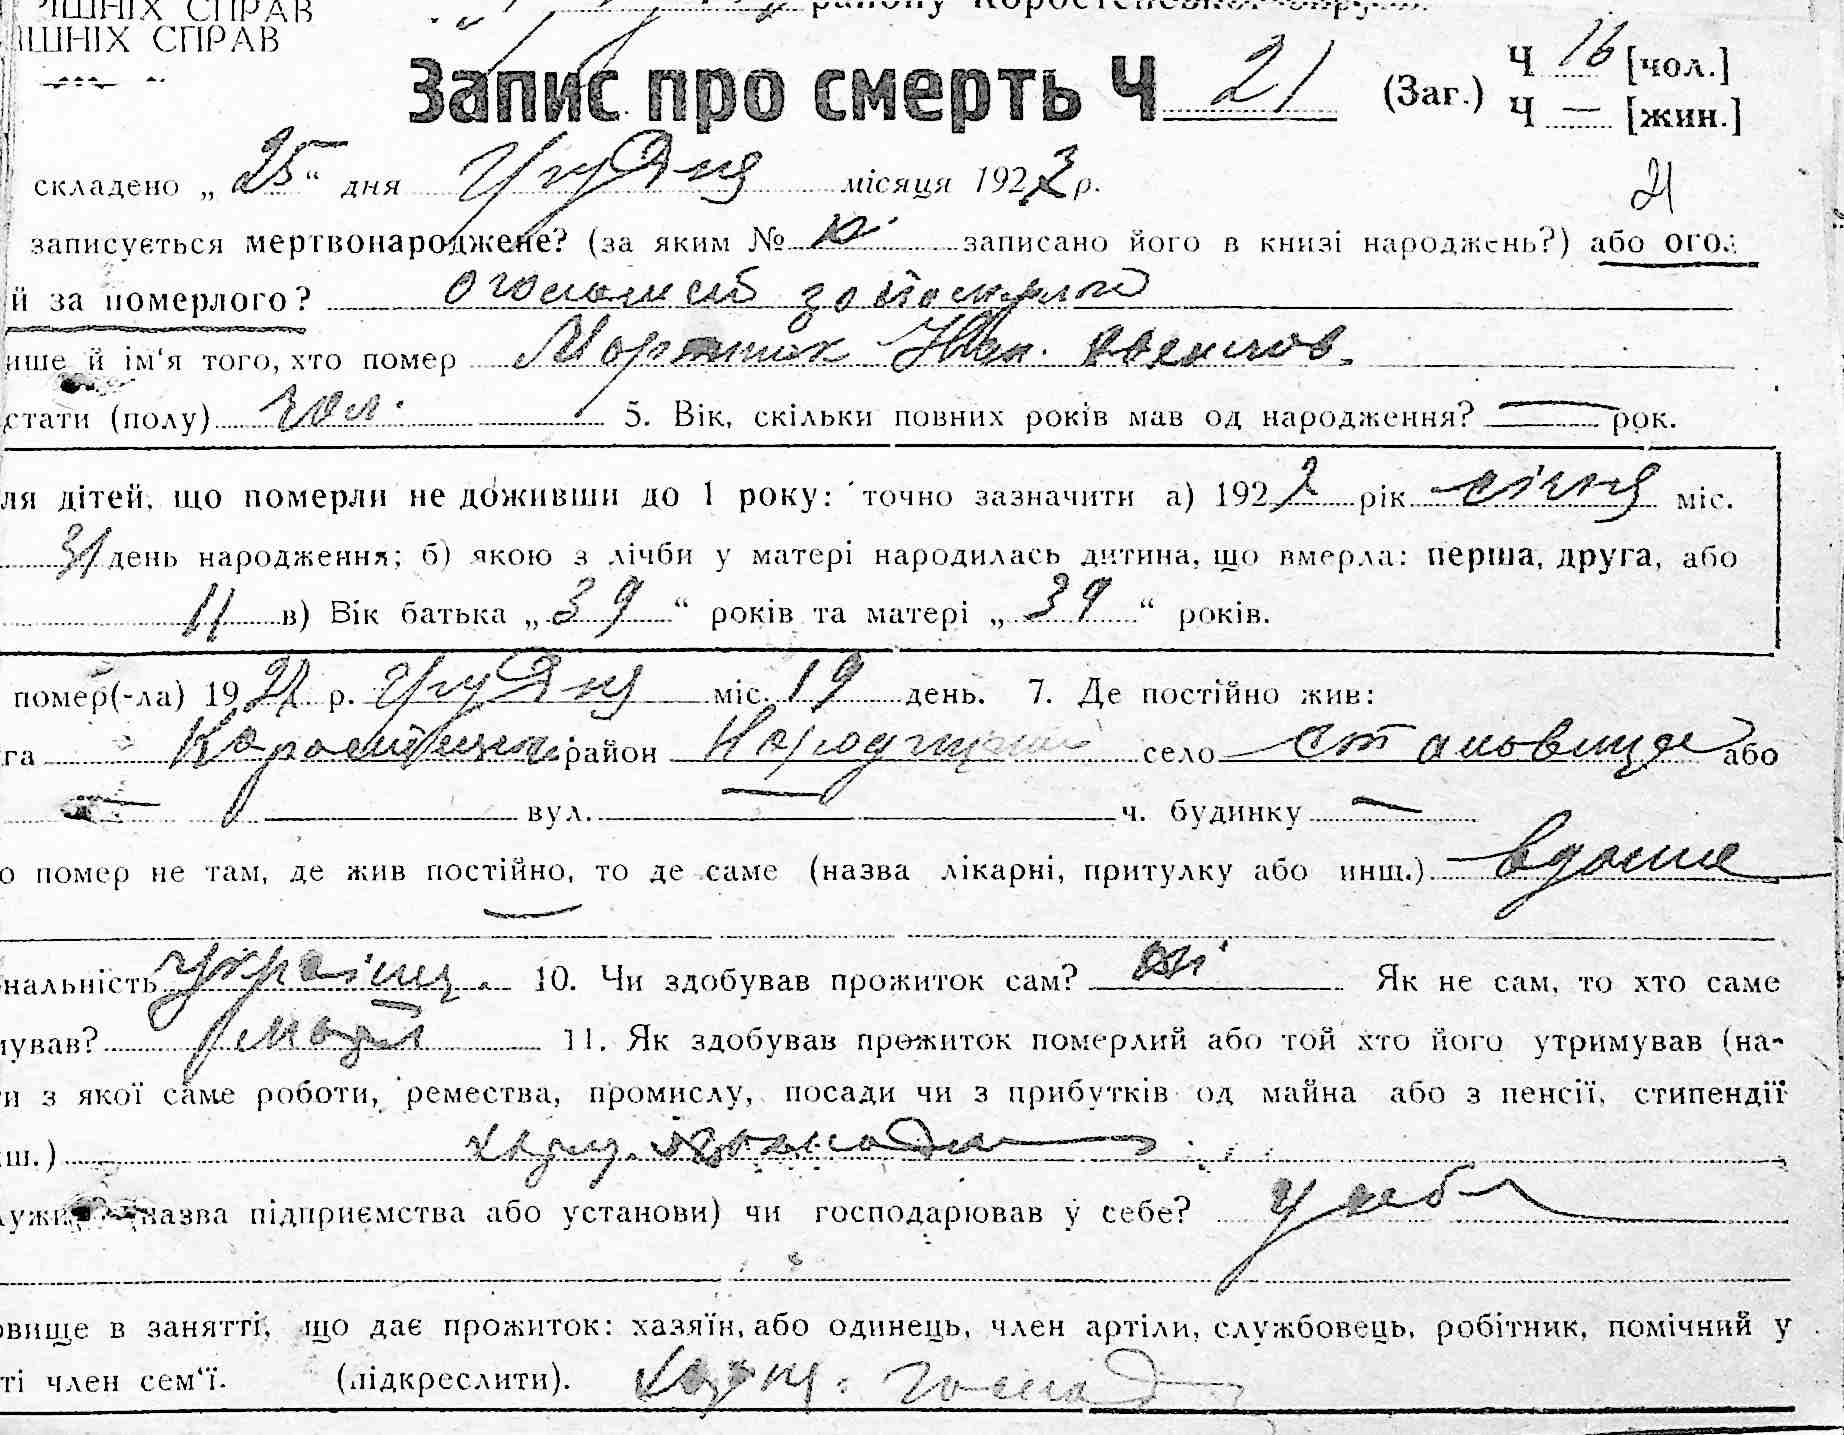 ІШНІХ СПРАВ
району Коростенської округи
ІШНІХ СПРАВ
Запис про смерть Ч 21 (Заг.) Ч 16 [чол.]
Ч — [жин.]
складено „ 25 “ дня грудня місяця 192 р.
21
записується мертвонароджене? (за яким № записано його в книзі народжень?) або ого
й за померлого? за померлого
ище й ім‘я того, хто помер Іван
стати (полу) чол. 5. Вік, скільки повних років мав од народження? — рок.
ля дітей, що померли не доживши до 1 року: точно зазначити а) 1922 рік січня міс.
31 день народження; б) якою з лічби у матері народилась дитина, що вмерла: перша, друга, або
11 в) Вік батька „ 39 “ років та матері „ 39 “ років.
помер(-ла) 19 р. грудня міс. 19 день. 7. Де постійно жив:
га район село становище або
— вул. — ч. будинку —
о помер не там, де жив постійно, то де саме (назва лікарні, притулку або инш.) вдома
—
нальність україн. 10. Чи здобував прожиток сам? ні Як не сам, то хто саме
мував? 11. Як здобував прожиток померлий або той хто його утримував (на-
ти з якої саме роботи, ремества, промислу, посади чи з прибутків од майна або з пенсії, стипендії
нш.)
лужив (назва підприємства або установи) чи господарював у себе? у себе
овище в занятті, що дає прожиток: хазяїн, або одинець, член артіли, службовець, робітник, помічний у
ті член сем‘ї. (підкреслити).